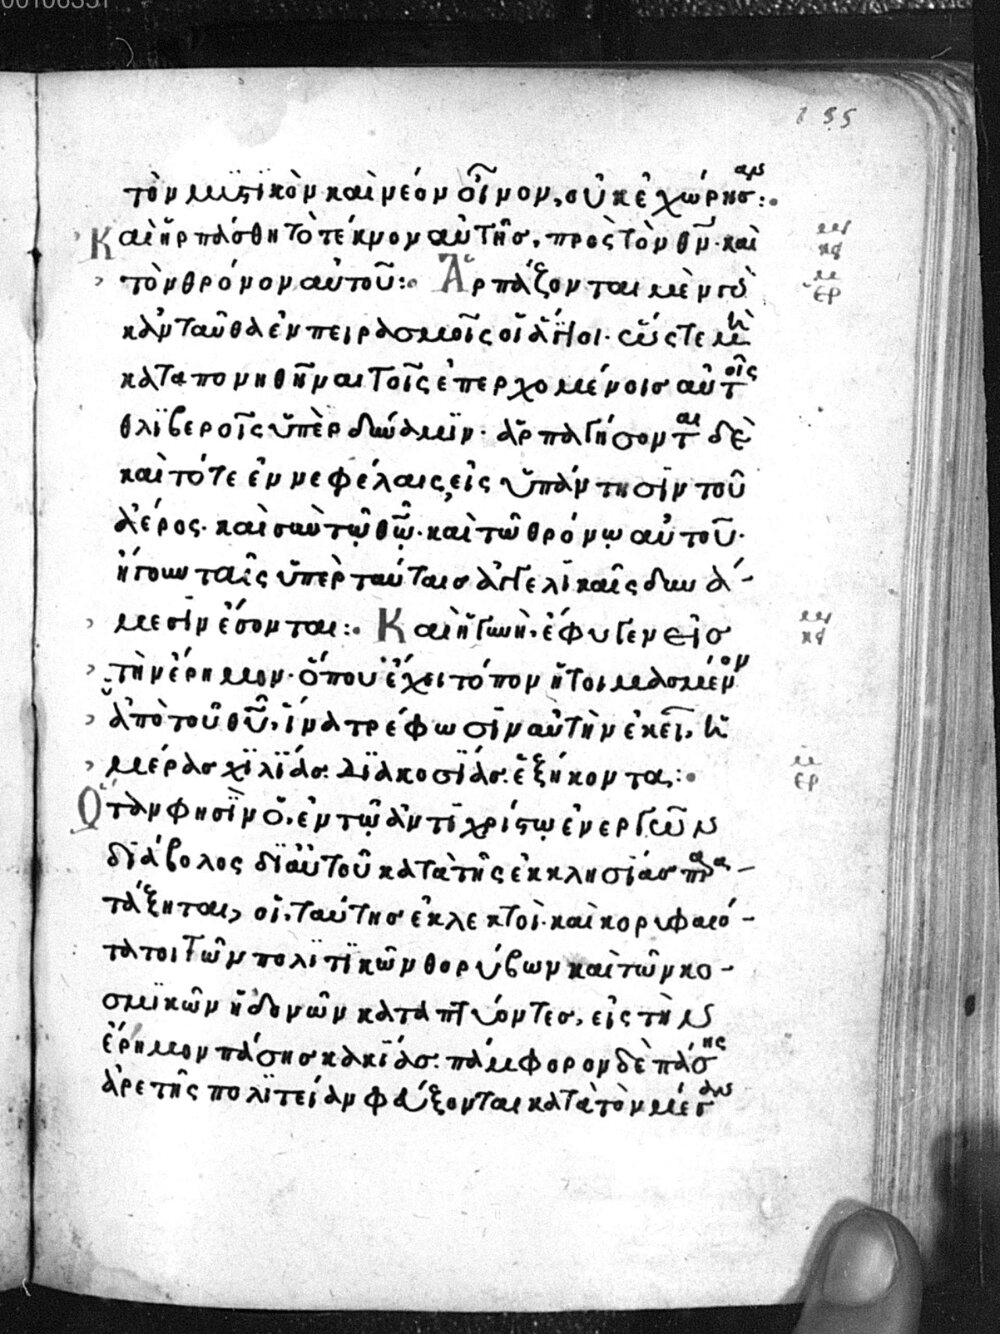 155
τὸν μυστικὸν καὶ νέον οἶνον, οὐκ ἐχώρησαν:·
Καὶ ἡρπάσθη τὸ τέκνον αὐτῆς, πρὸς τὸν θν̅· καὶ
τὸν θρόνον αὐτοῦ:· Ἁρπάζονται μὲν γὰρ
κἀνταῦθα ἐν πειρασμοῖς οἱ ἅγιοι· ὥστε μὴ
καταπονηθῆναι τοῖς ἐπερχομένοις αὐτοῖς
θλιβεροῖς ὑπὲρ δύναμιν· ἁρπαγήσονται δὲ
καὶ τότε ἐν νεφέλαις, εἰς ὑπάντησιν τοῦ
ἀέρος· καὶ σὺν τῷ θῷ· καὶ τῷ θρόνῳ αὐτοῦ·
ἤγουν ταῖς ὑπερτάταις ἀγγελικαῖς δυνά-
μεσιν ἔσονται:· Καὶ ἡ γυνὴ, ἔφυγεν εἰς
τὴν ἔρημον· ὅπου ἔχει τόπον ἡτοιμασμένον
ἀπὸ τοῦ θῦ, ἵνα τρέφωσιν αὐτὴν ἐκεῖ, ἡ
μέρας χιλίας διακοσίας ἑξήκοντας:·
Ὅταν φησὶν ὁ, ἐν τῷ ἀντιχρίστῳ ἐνεργῶν
διάβολος δι αὐτοῦ κατὰ τῆς ἐκκλησίας παρα-
τάξηται, οἱ ταύτης ἐκλεκτοὶ· καὶ κορυφαιό-
τατοι τῶν πολιτικῶν θορύβων καὶ τῶν κο-
σμικῶν ἡδονῶν καταπτύοντες, εἰς τὴν
ἔρημον πάσης κακίας· πάμφορον δὲ πάσης
ἀρετῆς πολιτείαν φεύξονται κατὰ τὸν μέγαν